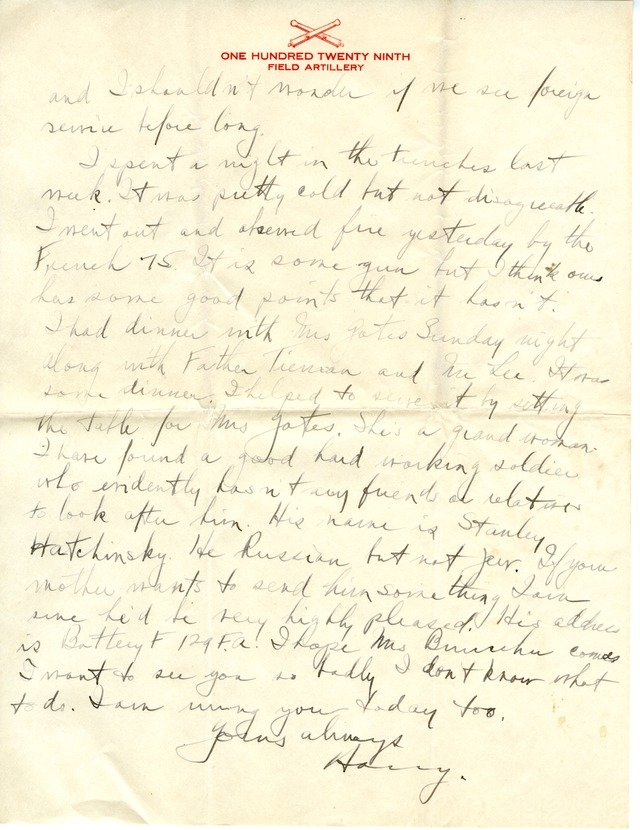 ONE HUNDRED TWENTY NINTH
FIELD ARTILLERY
and I shouldn't wonder if we see foreign
service before long.
I spent a night in the trenches last
week. It was pretty cold but not disagreeable.
I went out and observed fire yesterday by the
French 75. It is some gun but I think ours
has some good points that it hasn't.
I had dinner with Mrs Gates Sunday night
along with Father Tiernan and Mr Lee. It was
some dinner. I helped to serve it by setting
the table for Mrs Gates. She's a grand woman.
I have found a good hard working soldier
who evidently hasn't any friends or relatives
to look after him. His name is Stanley
Hatchinsky. He Russian but not Jew. If your
mother wants to send him something I am
sure he'd be very highly pleased. His address
is Battery F 129 F.A. I hope Mrs comes
I want to see you so badly I don't know what
to do. I am wiring you today too.
Yours always
Harry.